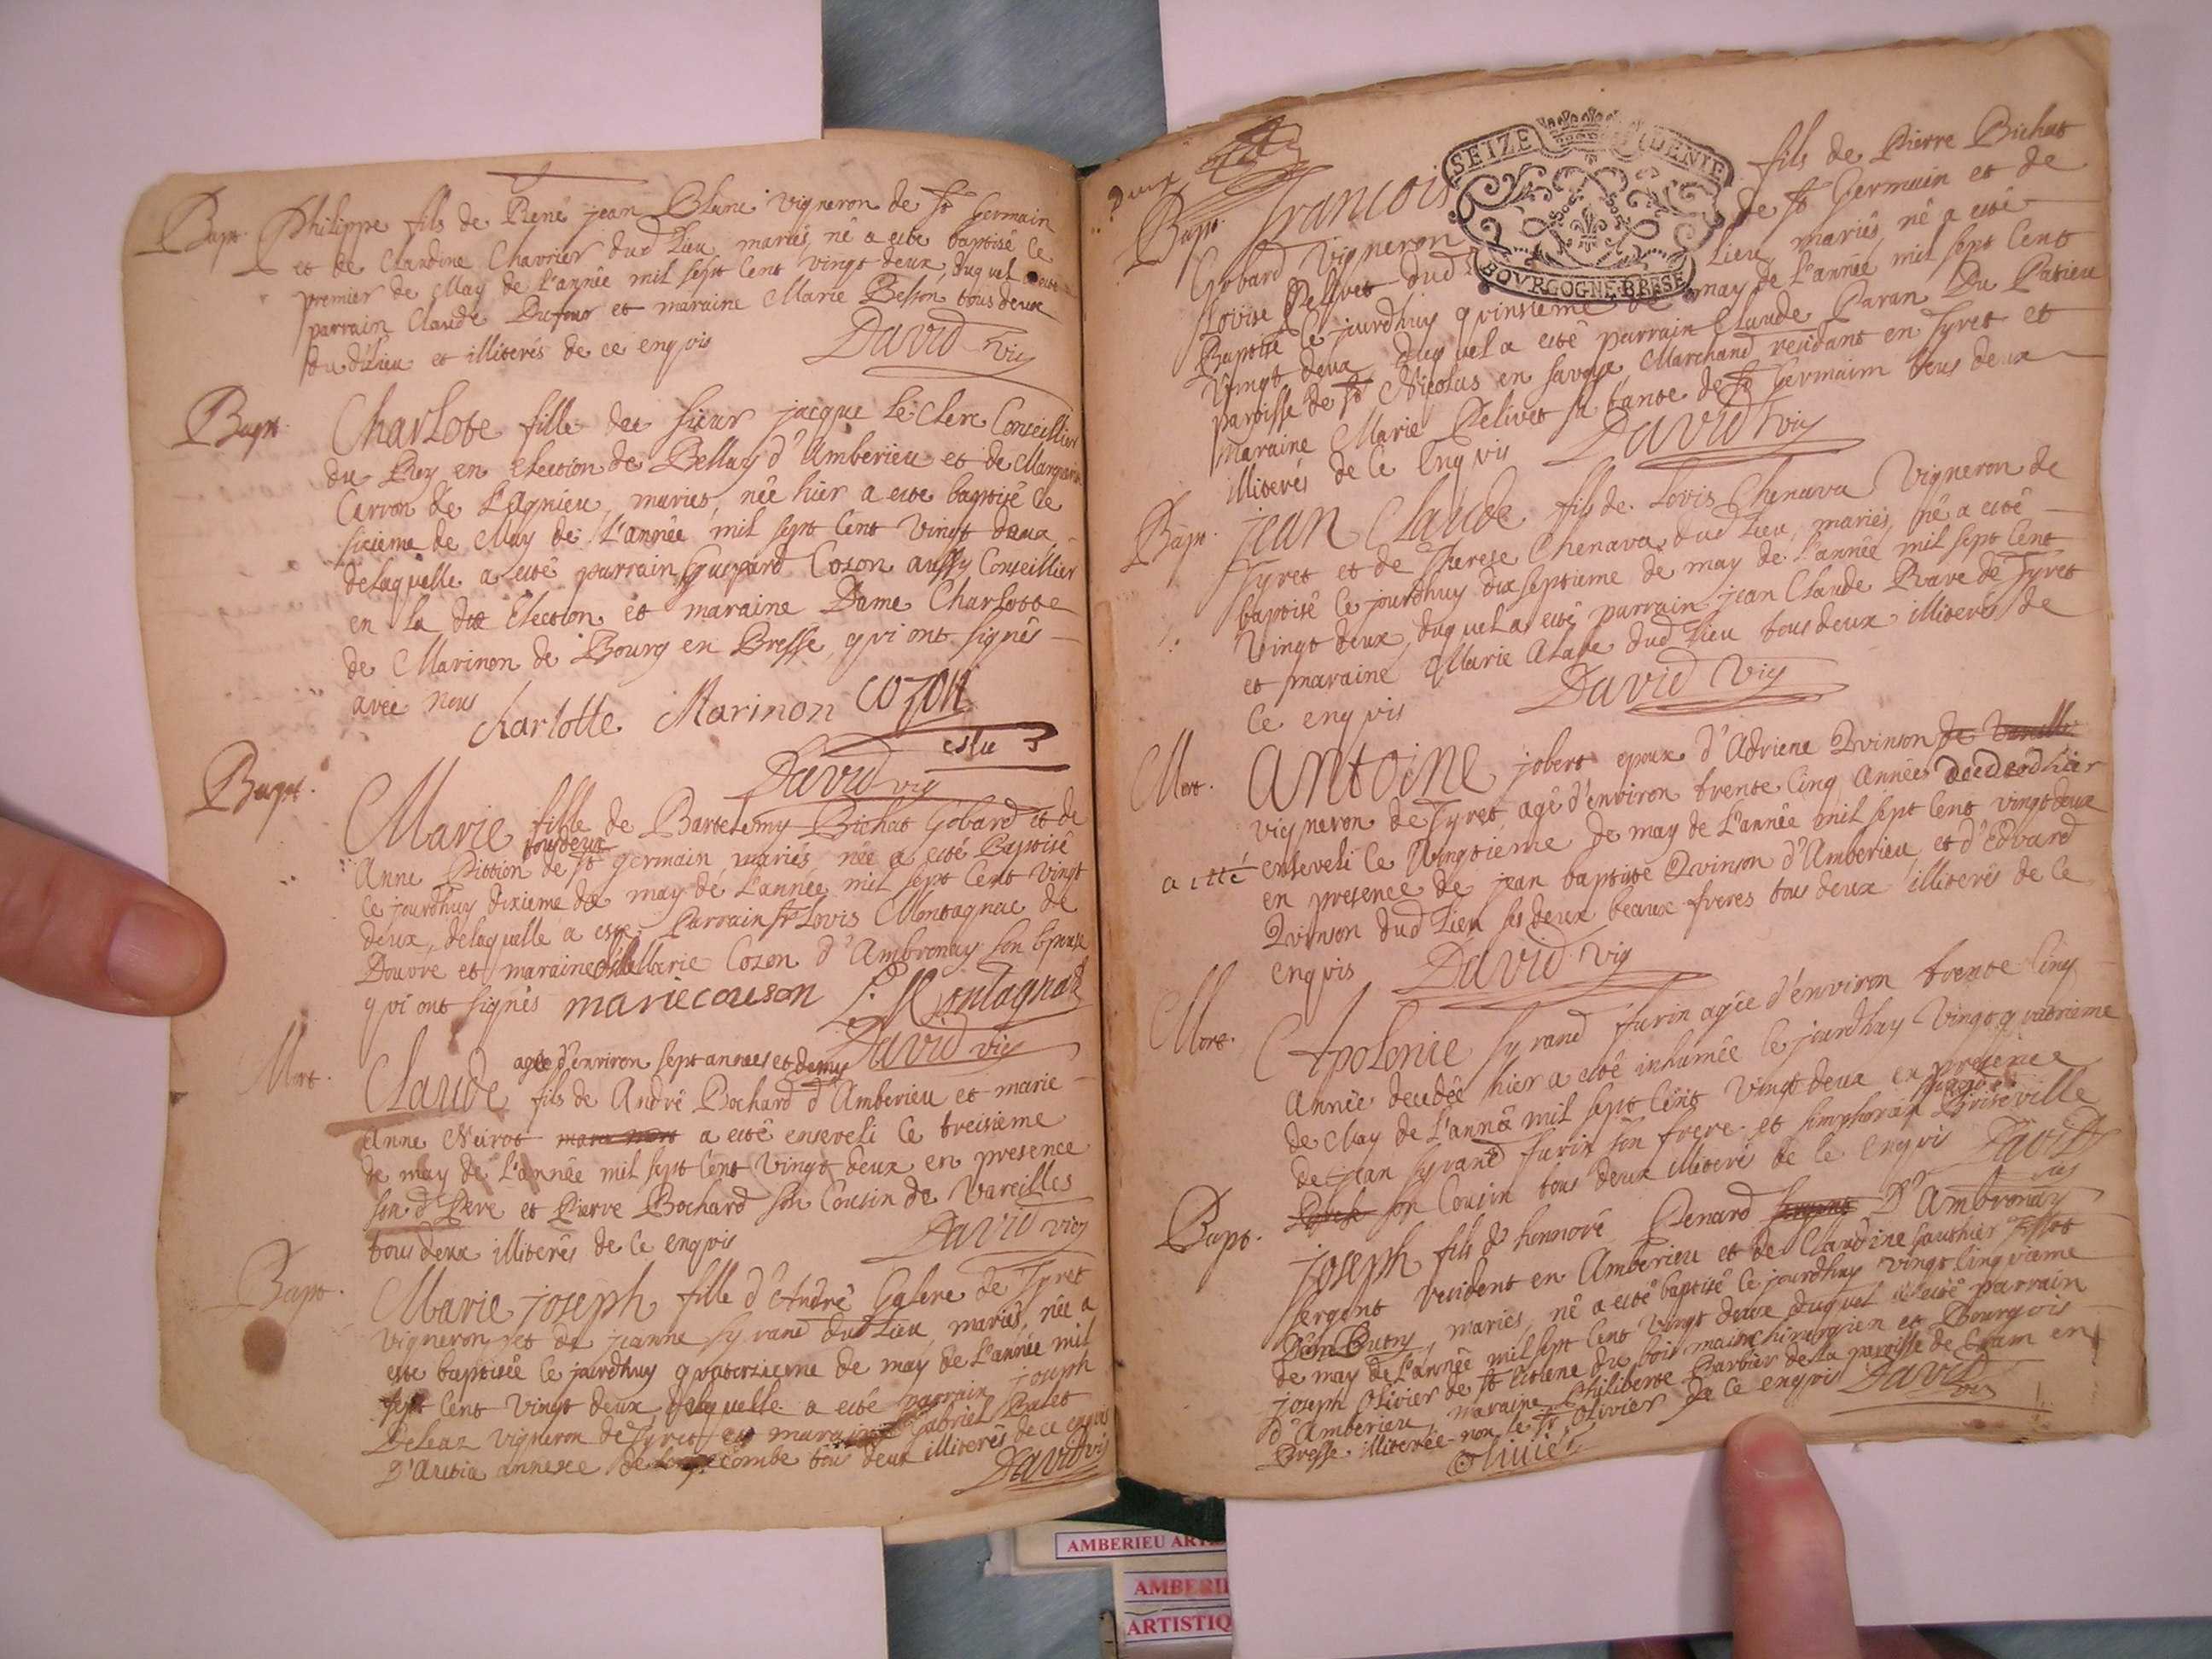 Bapt. Philippe fils de René jean Blanc vigneron de St Germain
et de Claudine Chavrier dud Lieu mariés, né a esté baptisé le
premier de May de L'année mil sept Cent vingt deux, duquel
parrain Claude Dufour et maraine Marie Besson tous deux
dud Lieu et illiterés de ce enquis
David vic
Bapt. Charlote fille de sieur jacque Le Clerc Conseillier
du Roy en election de Bellay d'Amberieu et de Marguerite
Carron de Lagnieu, mariés, née hier a esté baptisé le
sixieme de May de L'année mil sept Cent Vingt deux,
delaquelle a esté parrain Guspard Cozon aussy Conseillier
en La dite Election et maraine Dame Charlotte
de Marinon de Bourg en Bresse, qui ont signés
avec nous
Charlotte Marinon Cozon
eslu
David vic
Bapt. Marie fille de Bartelemy Bichat Gobard et de
tous deux
Anne Pittion de St germain mariés, née a esté Baptisé
ce jourdhuy dixieme de may de L'année mil sept Cent vingt
deux, delaquelle a esté Parrain sr Lovis Montagnac de
Douvre et maraine Marie Cozon d'Ambronay son epouse
qui ont signés marie couson L. Montagnat
David vic
agée d'environ sept années et demy
Mort. Claude fils de André Bochard d'Amberieu et marie
Anne Neirot a esté enseveli le treisieme
de may de L'année mil sept Cent Vingt deux en presence
son d Pere et Pierre Bochard son Cousin de Vareilles
tous deux illiterés de Ce enquis
David vic
Bapt. Marie joseph fille d'André Galere de Tyret
vigneron et de jeanne Syrand dud Lieu, mariés, née a
esté baptisée le jourdhuy quatorzieme de may de L'année mil
sept Cent Vingt deux delaquelle a esté parrain joseph
Deleaz vigneron de Tyret et maraine Gabriel Bulet
D'Arebia annexe de Longecombe tous deux illiterés de ce enquis
David vic
Deux
SEIZE DENIE
BOVRGOGNE-BRESE
Bapt. François fils de Pierre Bichat
Gobard Vigneron de St Germain et de
Lovise Pelivet dud Lieu, mariés, né a esté
Baptisé le jourdhuy quinsieme de may de L'année mil sept Cent
Vingt deux, duquel a esté parrain Claude Paran Du Patieu
paroisse de St Nicolas en Savoye Marchand residant en Tyret et
Maraine Marie Pelivet sa tante de St Germain tous deux
illiterés de Ce Enquis David vic
Bapt. jean Claude fils de Lovis Chenava Vigneron de
Tyret et de Therese Chenava dud Lieu, mariés, né a esté
baptisé le jourdhuy dixseptieme de may de L'année mil sept Cent
Vingt deux, duquel a esté parrain jean Claude Rave de Tyret
et maraine Marie Alabe dud Lieu tous deux illiterés de
Ce enquis David vic
Mort. Antoine jobert epoux d'Adriene Quinson
vigneron de Tyret, agé d'environ trente Cinq Années decedé hier
a esté enseveli le Vingtieme de may de L'année mil sept Cent vingt deux
en presence de jean baptiste Quinson d'Amberieu, et d'Edvard
Quinson dud Lieu ses deux beaux freres tous deux illiterés de Ce
enquis David vic
Mort. Apolonie Syrand furin agée d'environ trente Cinq
Années decedée hier a esté inhumée le jourdhuy Vingt quatrieme
de May de L'année mil sept Cent Vingt deux en presence
de jean Syrand furin son frere et simphorien Briseville
son Cousin tous deux illiteré de Ce enquis David
vic
Bapt. joseph fils d honnoré Penard D'Ambronay
sergent residant en Amberieu et de Claudine Gauthier
mariés, né a esté baptisé le jourdhuy vingt Cinquieme
de may de L'année mil sept Cent Vingt deux duquel a esté parrain
joseph Olivier de St Estiene du bois maitre chirurgien et Bourgois
d'Amberieu, maraine Philiberte Barbier de la paroisse de Cram en
Bresse illiterée non le sr Olivier de ce enquis David
vic
Olivier
AMBERIEU
ARTISTIQ